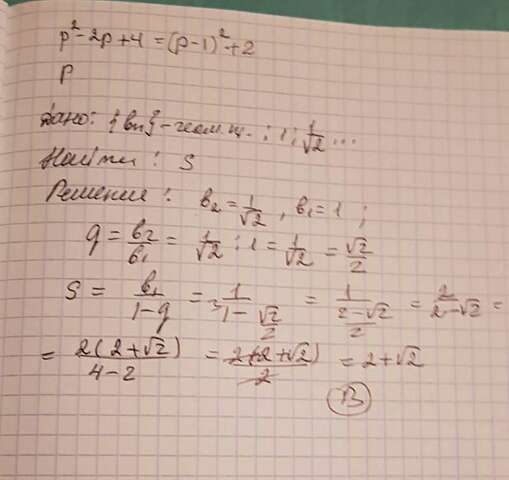 p² - 2p + 4 = (p-1)² + 2
p
Дано: {bn} - геом. ; 1; 1/√2 ...
Найти: S
Решение: b₂ = 1/√2, b₁ = 1;
q = b₂/b₁ = 1/√2 : 1 = 1/√2 = √2/2
S = b₁/(1-q) = 1/(1 - √2/2) = 1/((2-√2)/2) = 2/(2-√2) =
= 2(2+√2)/(4-2) = 2(2+√2)/2 = 2+√2
B